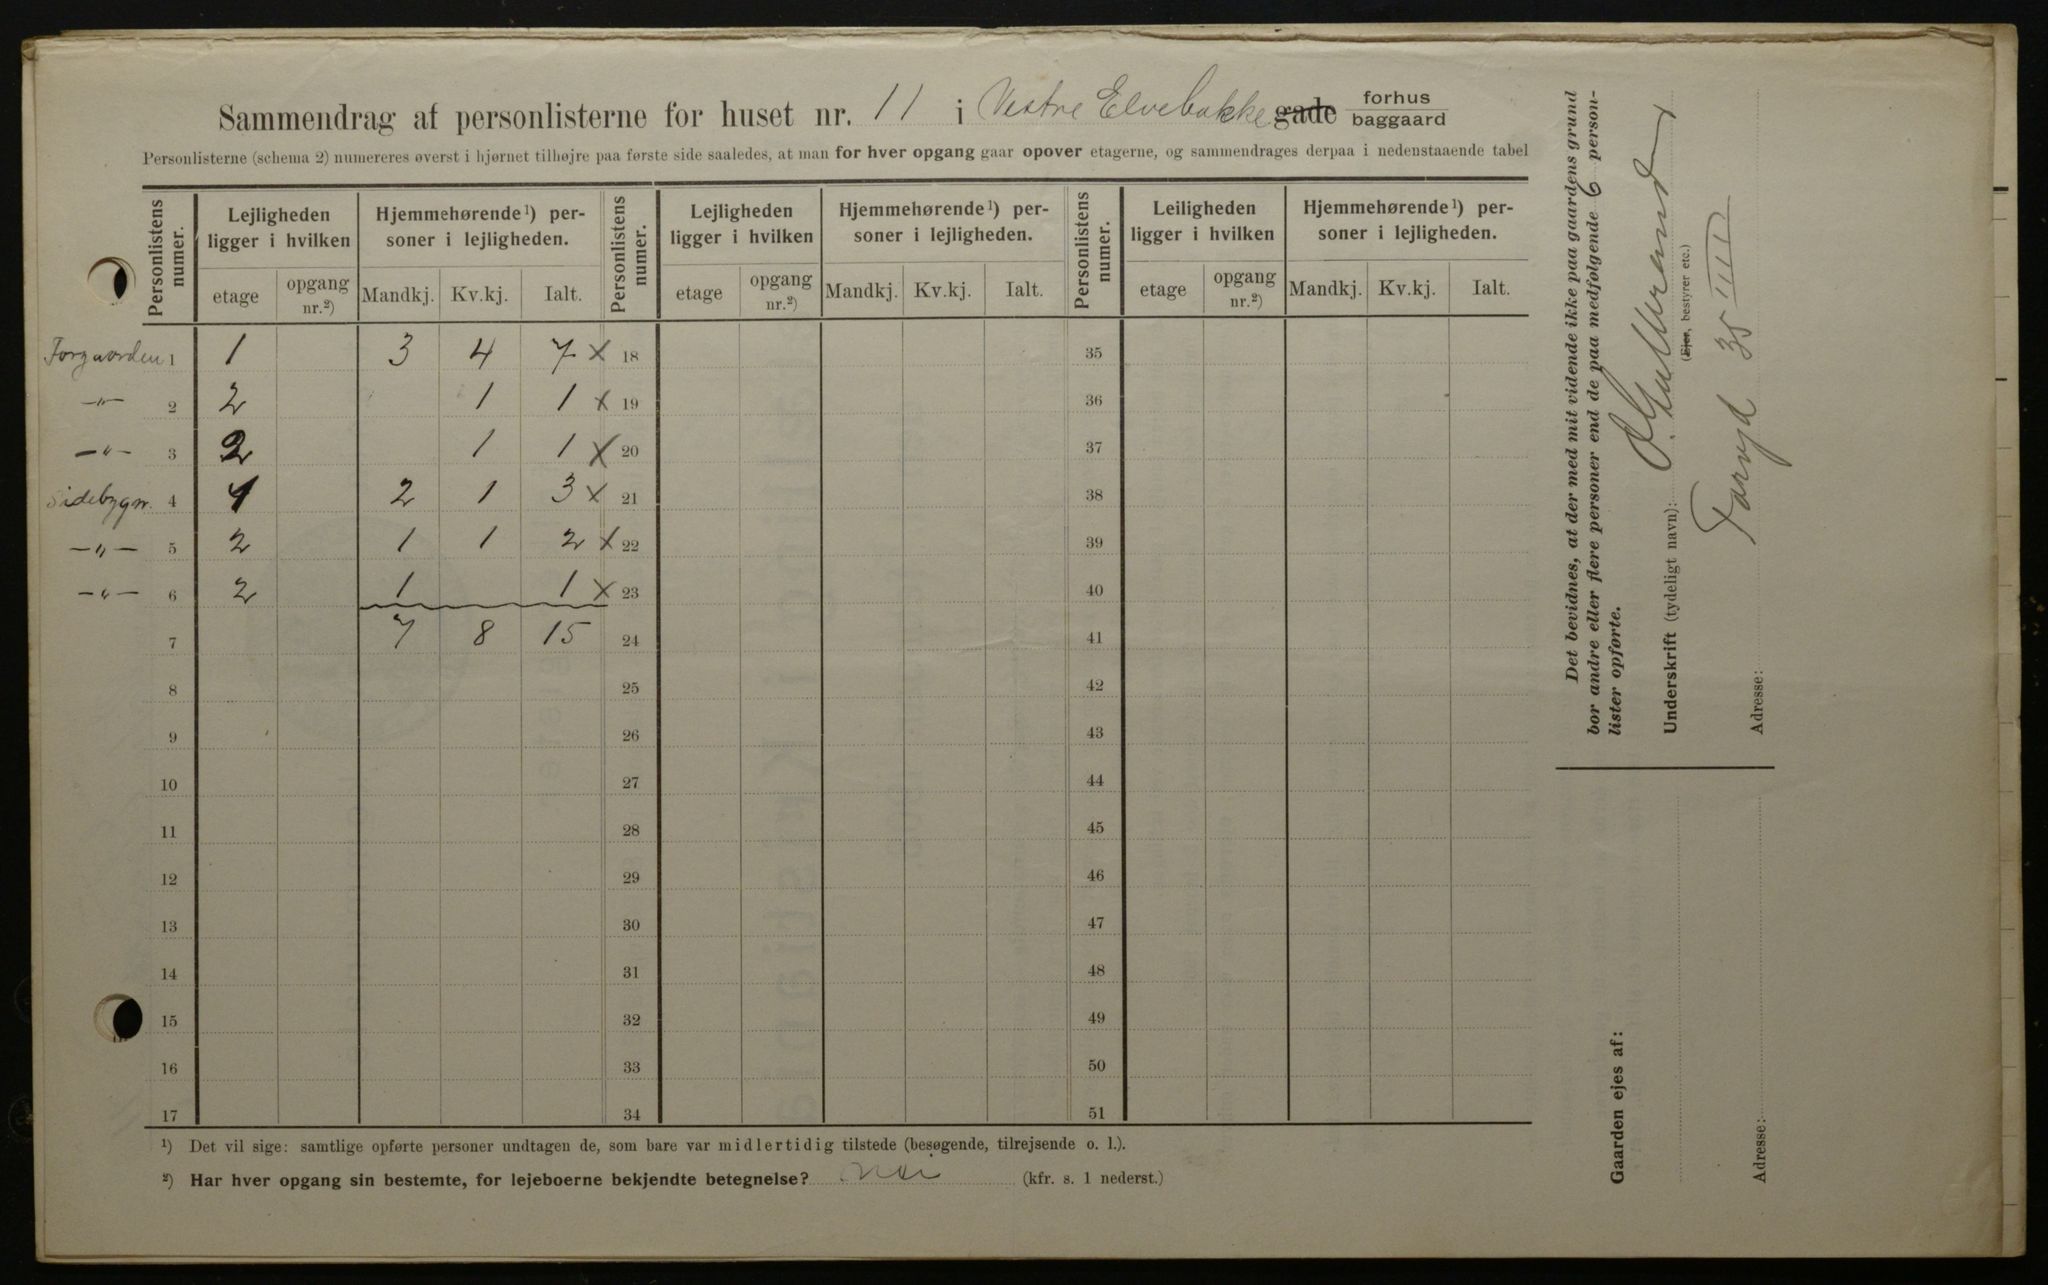 Sammendrag af personlisterne for huset nr. 11 i Vestre Elvebakke gade forhus baggaard
Personlisterne (schema 2) numereres øverst i hjørnet tilhøjre paa første side saaledes, at man for hver opgang gaar opover etagerne, og sammendrages derpaa i nedenstaaende tabel
Personlistens numer. Lejligheden ligger i hvilken Hjemmehørende¹) personer i lejligheden. Personlistens numer. Lejligheden ligger i hvilken Hjemmehørende¹) personer i lejligheden. Personlistens numer. Leiligheden ligger i hvilken Hjemmehørende¹) personer i lejligheden.
etage opgang nr.²) Mandkj. Kv.kj. Ialt. etage opgang nr.²) Mandkj. Kv.kj. Ialt. etage opgang nr.²) Mandkj. Kv.kj. Ialt.
Forgaarden 1 1 3 4 7 x 18 35
—"— 2 2 1 1 x 19 36
—"— 3 2 1 1 x 20 37
Sidebygn. 4 1 2 1 3 x 21 38
—"— 5 2 1 1 2 x 22 39
—"— 6 2 1 1 x 23 40
7 7 8 15 24 41
8 25 42
9 26 43
10 27 44
11 28 45
12 29 46
13 30 47
14 31 48
15 32 49
16 33 50
17 34 51
¹) Det vil sige: samtlige opførte personer undtagen de, som bare var midlertidig tilstede (besøgende, tilrejsende o. l.).
²) Har hver opgang sin bestemte, for lejeboerne bekjendte betegnelse? nei (kfr. s. 1 nederst.)
Det bevidnes, at der med mit vidende ikke paa gaardens grund
bor andre eller flere personer end de paa medfølgende 6 person-
lister opførte.
Underskrift (tydeligt navn):
(Ejer, bestyrer etc.)
Adresse: Torvgd 35 IIII
Gaarden ejes af:
Adresse: